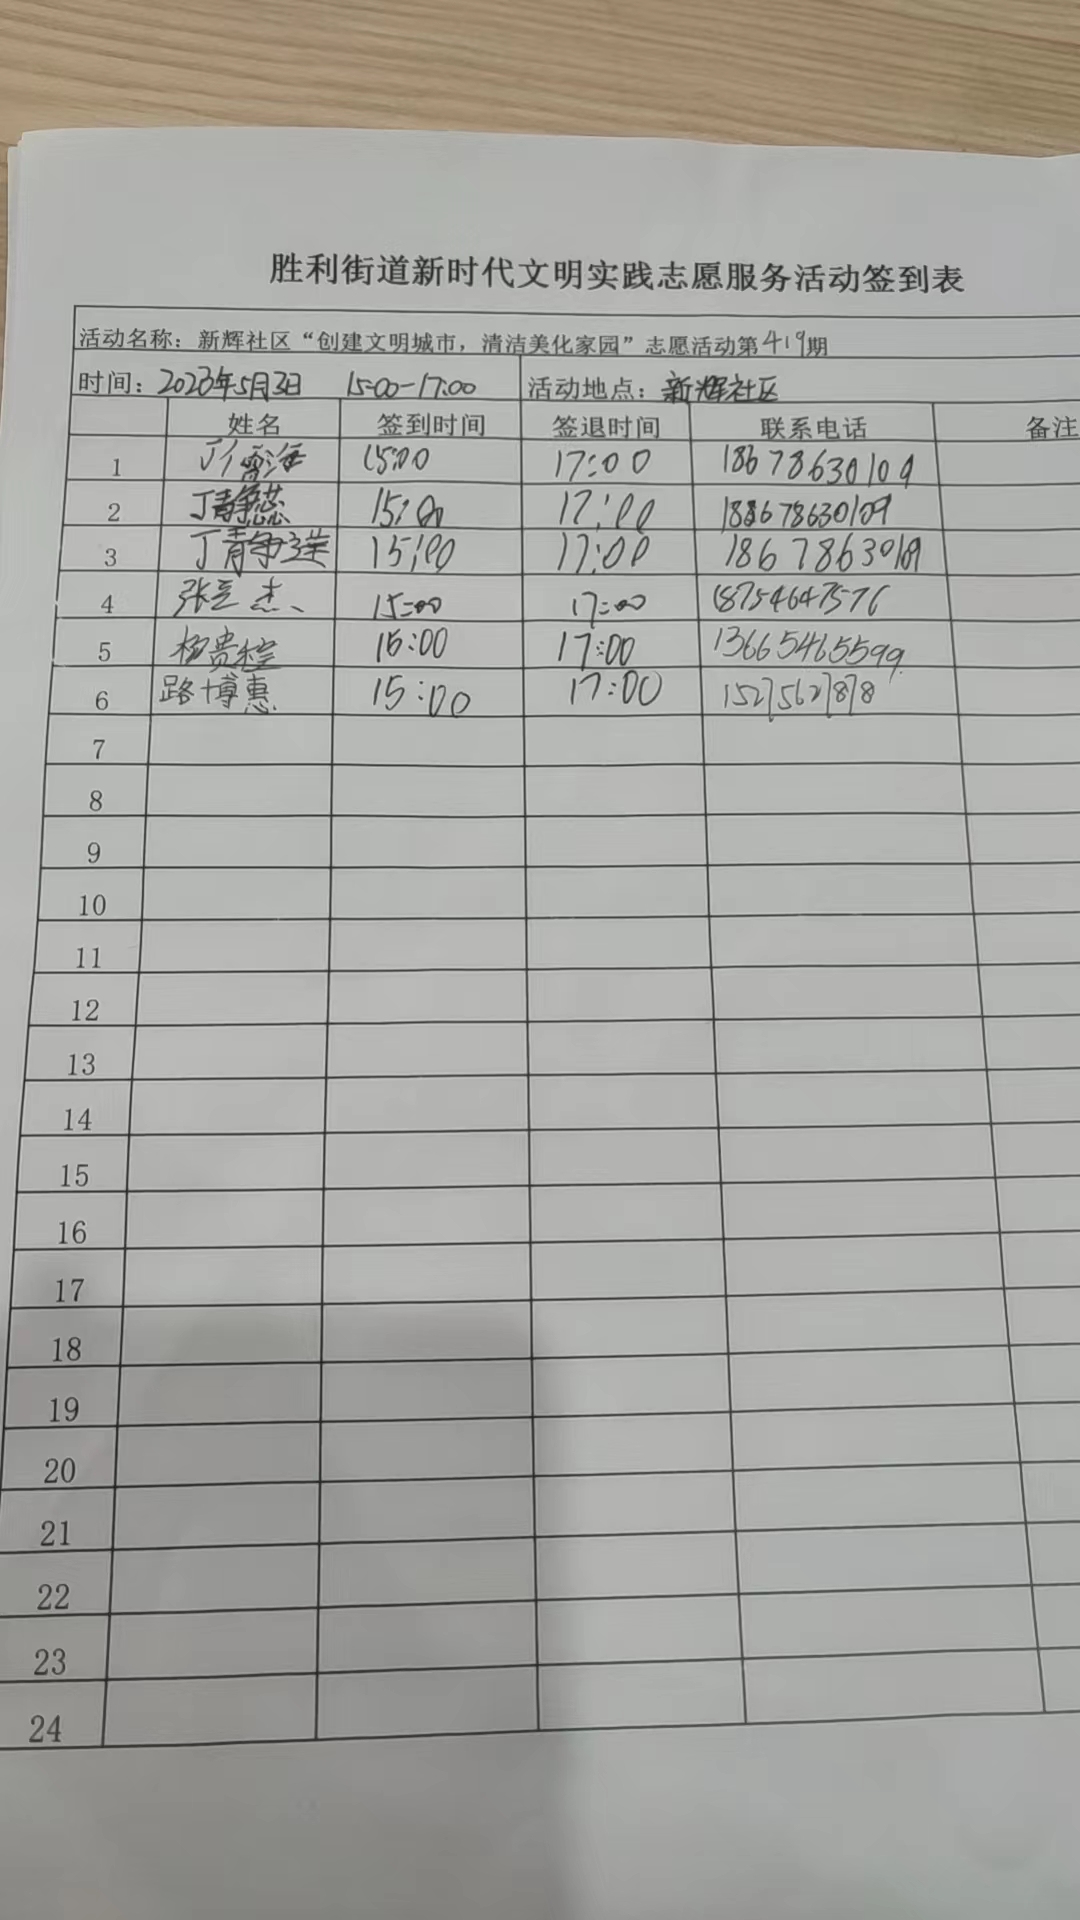 胜利街道新时代文明实践志愿服务活动签到表
活动名称：新辉社区“创建文明城市，清洁美化家园”志愿活动第419期
时间：2023年5月3日 15:00-17:00 活动地点：新辉社区
姓名 签到时间 签退时间 联系电话 备注
1 15:00 17:00 18678630109
2 丁静蕊 15:00 17:00 18678630109
3 丁青 15:00 17:00 18678630109
4 张 杰、 15:00 17:00 18754647576
5 杨贵 15:00 17:00 13665465599
6 路博惠 15:00 17:00 15275627878
7
8
9
10
11
12
13
14
15
16
17
18
19
20
21
22
23
24